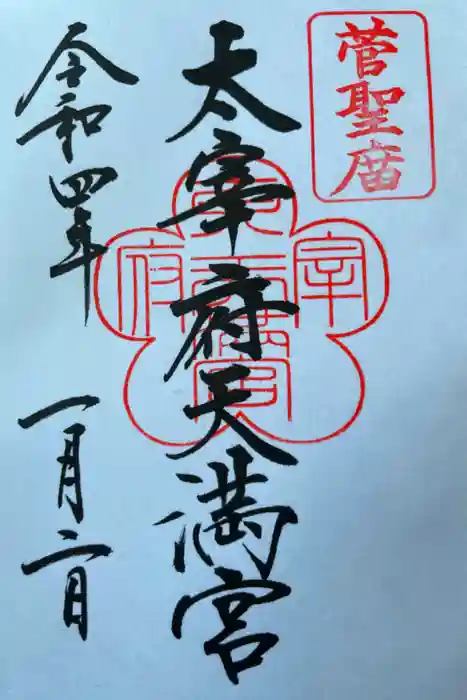 菅聖庿
太宰府天満宮
令和四年 一月二日